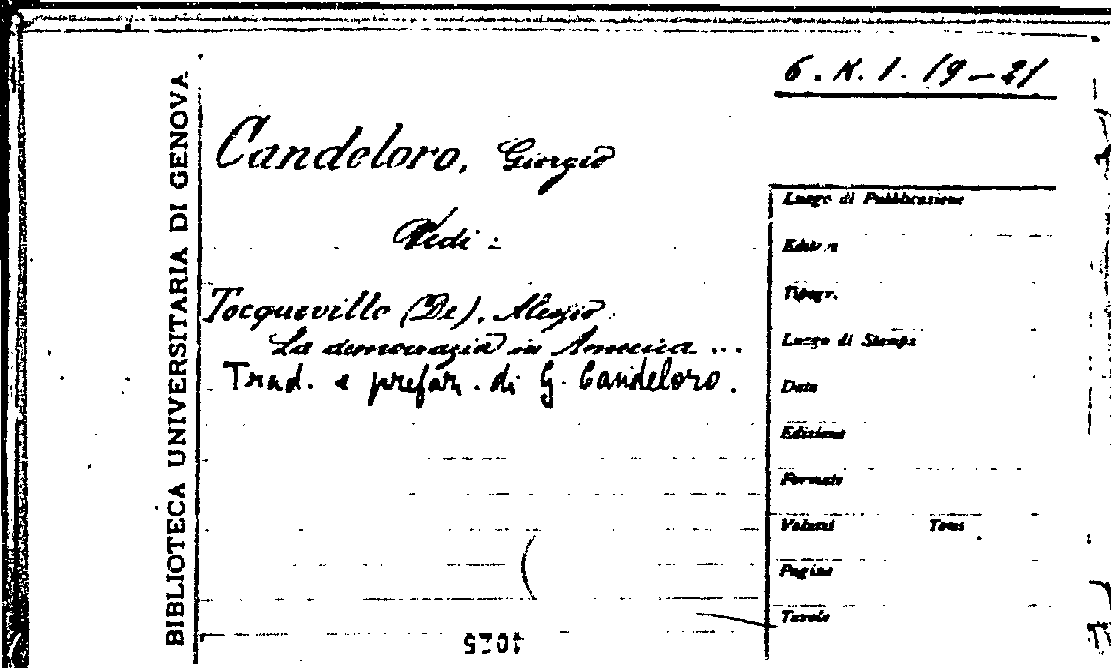 6. K. 1. 19-21
BIBLIOTECA UNIVERSITARIA DI GENOVA
Candeloro, Giorgio
Vedi :
Tocqueville (De), Alessio
La democrazia in America ...
Trad. e prefaz. di G. Candeloro.
Luogo di Pubblicazione
Editore
Tipogr.
Luogo di Stampa
Data
Edizione
Formato
Volumi Tomi
Pagine
Tavole